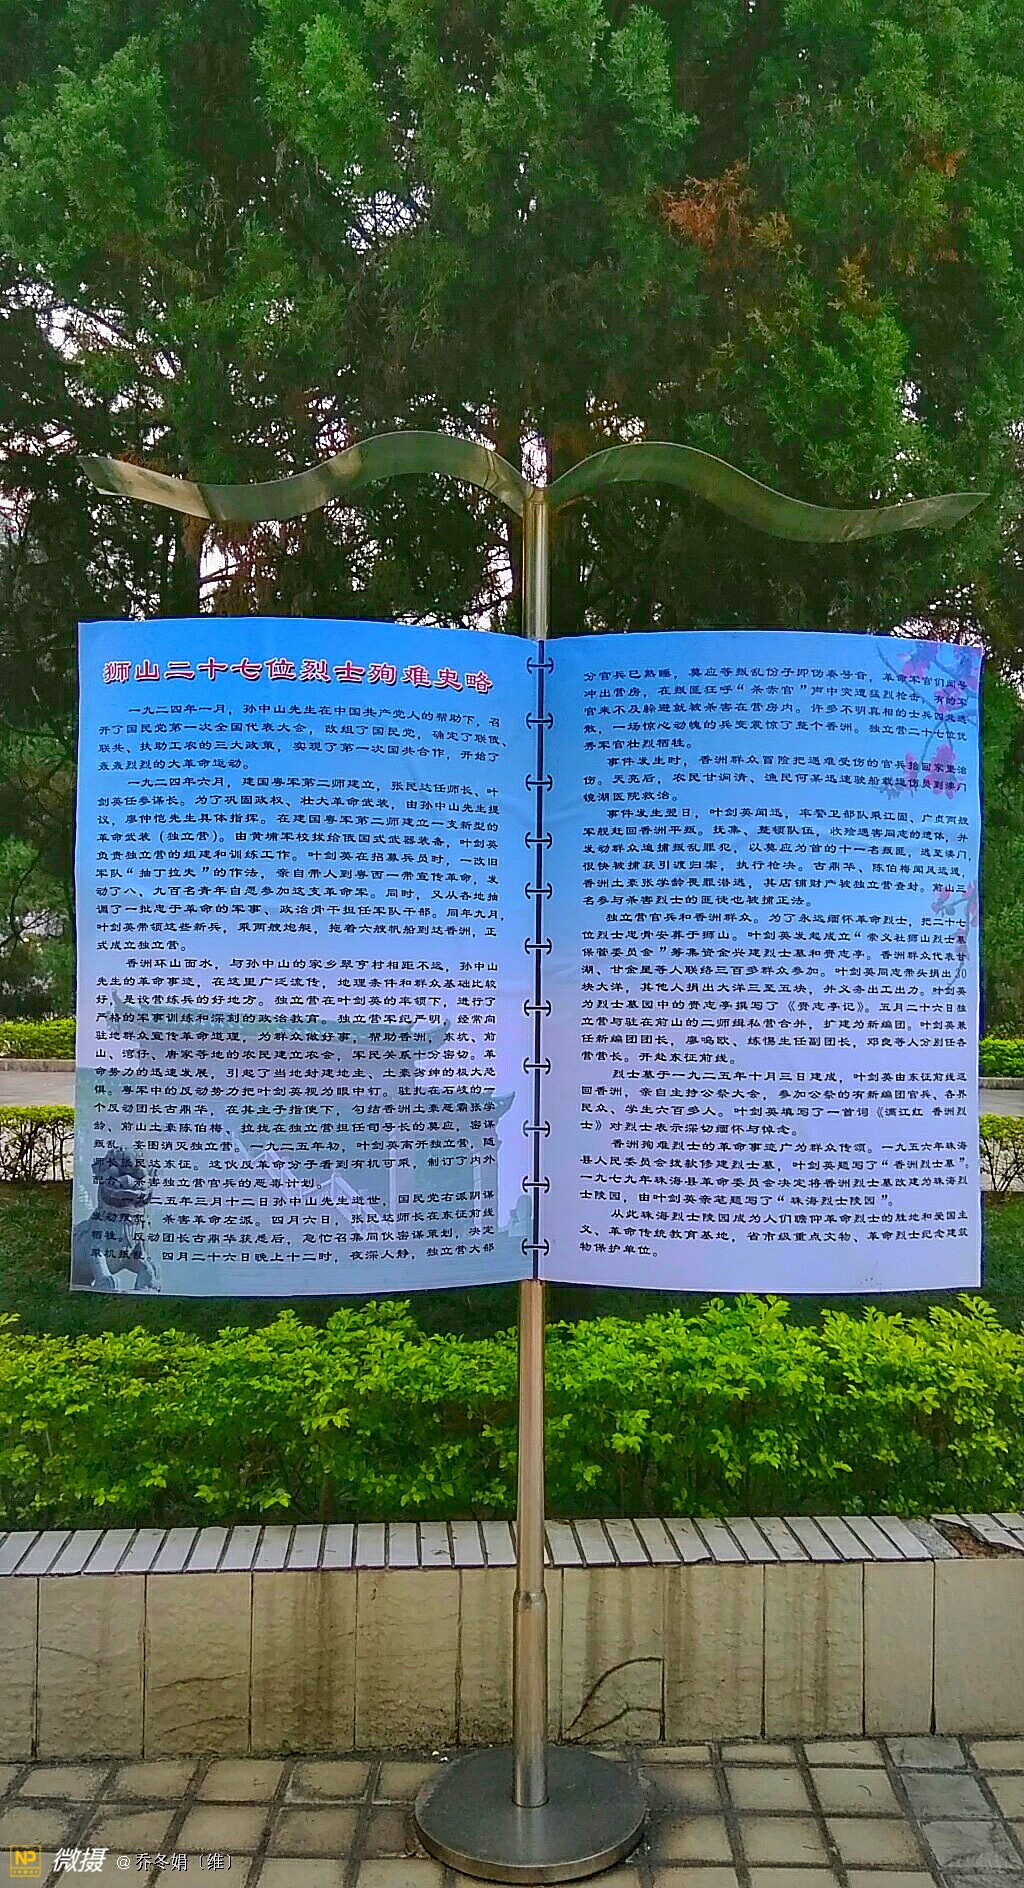 狮山二十七位烈士殉难史略
一九二四年一月，孙中山先生在中国共产党人的帮助下，召
开了国民党第一次全国代表大会，改组了国民党，确定了联俄、
联共、扶助工农的三大政策，实现了第一次国共合作，开始了
轰轰烈烈的大革命运动。
一九二四年六月，建国粤军第二师建立，张民达任师长、叶
剑英任参谋长。为了巩固政权、壮大革命武装，由孙中山先生提
议，廖仲恺先生具体指挥。在建国粤军第二师建立一支新型的
革命武装（独立营）。由黄埔军校拔给俄国式武器装备，叶剑英
负责独立营的组建和训练工作。叶剑英在招募兵员时，一改旧
军队“抽丁拉夫”的作法，亲自带人到粤西一带宣传革命，发
动了八、九百名青年自愿参加这支革命军。同时，又从各地抽
调了一批忠于革命的军事、政治骨干担任军队干部。同年九月，
叶剑英带领这些新兵，乘两炮艇，拖着六艘帆船到达香洲，正
式成立独立营。
香洲环山面水，与孙中山的家乡翠亨村相距不远，孙中山
先生的革命事迹，在这里广泛流传，地理条件和群众基础比较
好，是设营练兵的好地方。独立营在叶剑英的率领下，进行了
严格的军事训练和深刻的政治教育。独立营军纪严明，经常向
驻地群众宣传革命道理，为群众做好事，帮助香洲，东坑、前
山、湾仔、唐家等地的农民建立农会，军民关系十分密切。革
命势力的迅速发展，引起了当地封建地主、土豪劣绅的极大恐
惧。粤军中的反动势力把叶剑英视为眼中钉。驻扎在石歧的一
个反动团长古鼎华，在其主子指使下，勾结香洲土豪恶霸张学
龄、前山土豪陈伯梅、拉拢在独立营担任司号长的莫应，密谋
叛乱，妄图消灭独立营。一九二五年初，叶剑英离开独立营，随
师长张民达东征。这伙反革命分子看到有机可乘，制订了内外
配合、杀害独立营官兵的恶毒计划。
二五年三月十二日孙中山先生逝世，国民党右派阴谋
发动叛乱，杀害革命左派。四月六日，张民达师长在东征前线
牺牲。反动团长古鼎华获悉后，急忙召集同伙密谋策划，决定
乘机叛乱。四月二十六日晚上十二时，夜深人静，独立营大部
分官兵已熟睡，莫应等叛乱份子即伪奏号音，革命军官们闻号
冲出营房，在叛匪狂呼“杀赤官”声中突遭猛烈枪击，有的军
官来不及躲避就被杀害在营房内。许多不明真相的士兵四处逃
散，一场惊心动魄的兵变震惊了整个香洲。独立营二十七位优
秀军官壮烈牺牲。
事件发生时，香洲群众冒险把遇难受伤的官兵抬回家里治
伤。天亮后，农民甘润清、渔民何某迅速驶船载送伤员到澳门
镜湖医院救治。
事件发生翌日，叶剑英闻迅，率警卫部队乘江固、广贞两艘
军舰赶回香洲平叛。抚集、整顿队伍，收殓遇害同志的遗体，并
发动群众追捕叛乱罪犯，以莫应为首的十一名叛匪，逃至澳门，
很快被捕获引渡归案，执行枪决。古鼎华、陈伯梅闻风远遁，
香洲土豪张学龄畏罪潜逃，其店铺财产被独立营查封。前山三
名参与杀害烈士的匪徒也被捕正法。
独立营官兵和香洲群众。为了永远缅怀革命烈士，把二十七
位烈士忠骨安葬于狮山。叶剑英发起成立“崇义社狮山烈士墓
保管委员会”筹集资金兴建烈士墓和赉志亭。香洲群众代表甘
湖、甘金星等人联络三百多群众参加。叶剑英同志带头捐出30
块大洋，其他人捐出大洋三至五块，并义务出工出力。叶剑英
为烈士墓园中的赉志亭撰写了《赉志亭记》。五月二十六日独
立营与驻在前山的二师缉私营合并，扩建为新编团。叶剑英兼
任新编团团长，廖鸣欧、练惕生任副团长，邓良等人分别任各
营营长。开赴东征前线。
烈士墓于一九二五年十月三日建成，叶剑英由东征前线返
回香洲，亲自主持公祭大会，参加公祭的有新编团官兵、各界
民众、学生六百多人。叶剑英填写了一首词《满江红 香洲烈
士》对烈士表示深切缅怀与悼念。
香洲殉难烈士的革命事迹广为群众传颂。一九五六年珠海
县人民委员会拔款修建烈士墓，叶剑英题写了“香洲烈士墓”。
一九七九年珠海县革命委员会决定将香洲烈士墓改建为珠海烈
士陵园，由叶剑英亲笔题写了“珠海烈士陵园”。
从此珠海烈士陵园成为人们瞻仰革命烈士的胜地和爱国主
义、革命传统教育基地，省市级重点文物、革命烈士纪念建筑
物保护单位。
NP 微摄 @乔冬娟〔维〕